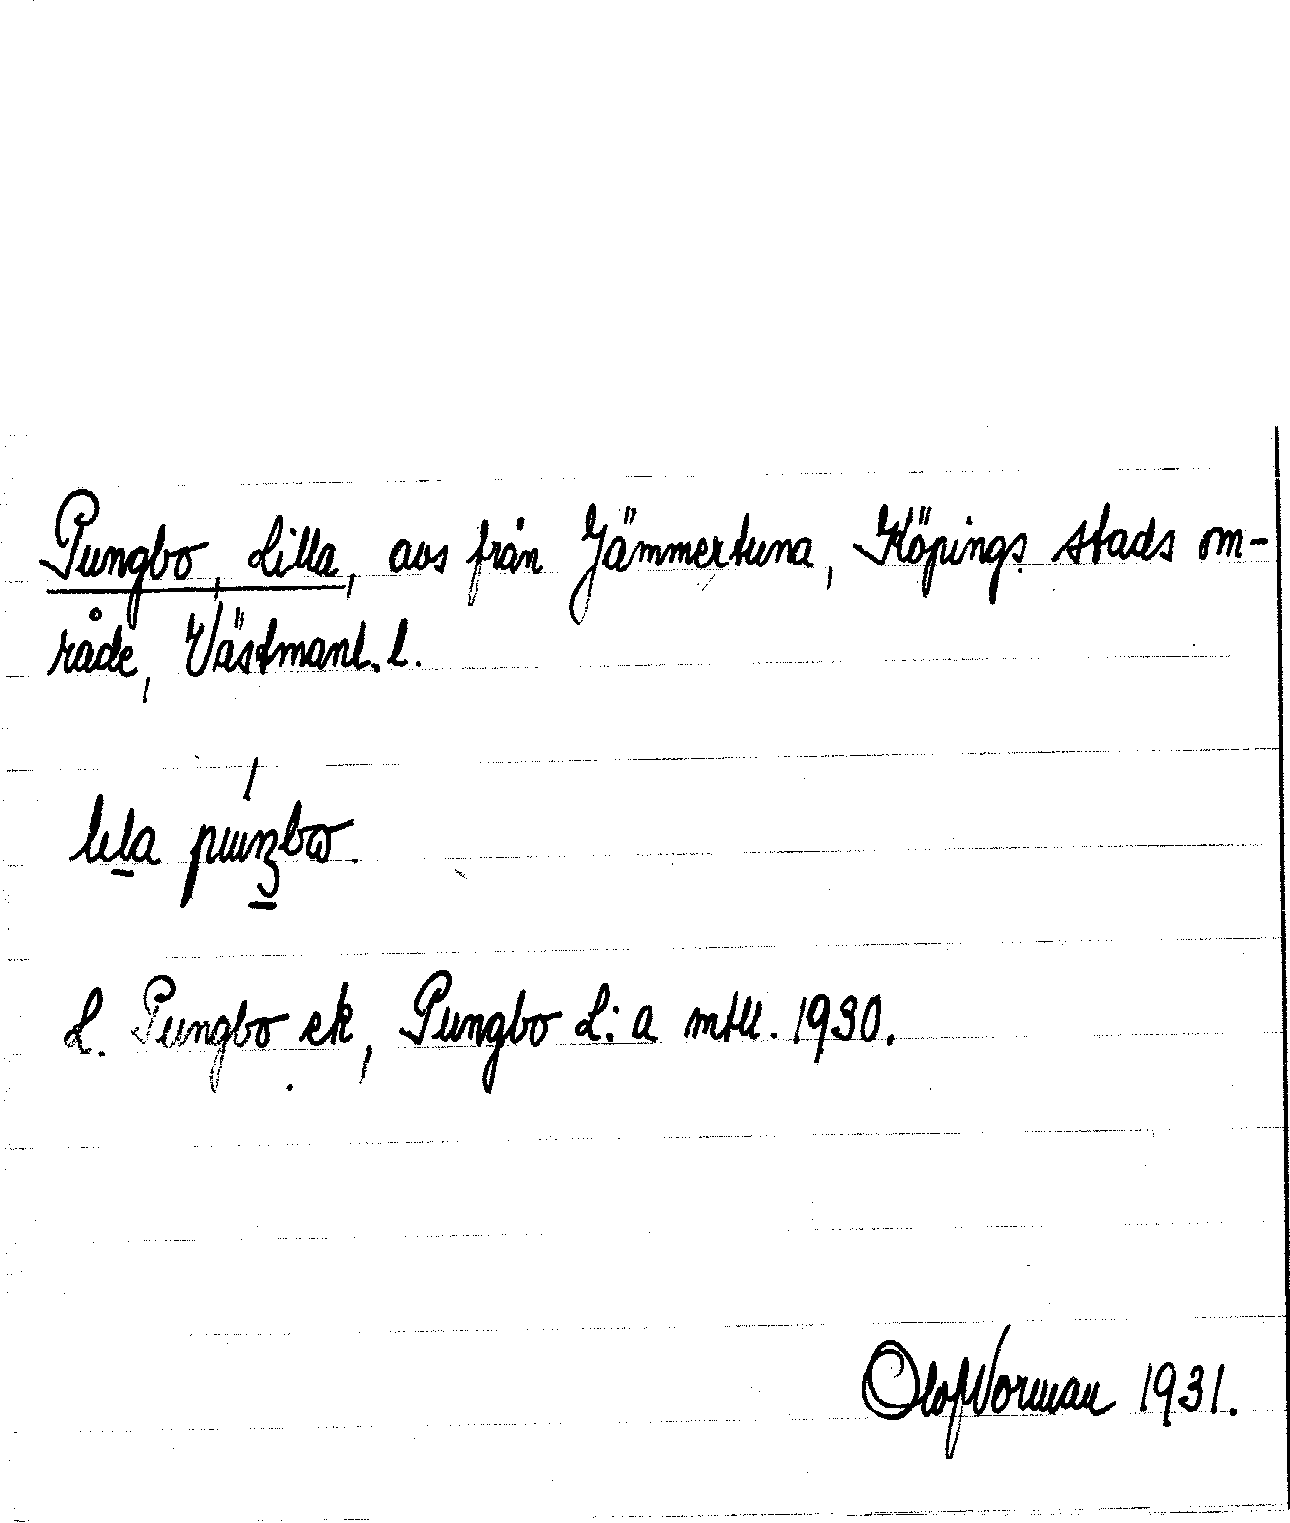 Pungbo, Lilla, avs från Jämmertuna, Köpings stads om-
råde, Västmanl. l.
lila
L. Pungbo ek, Pungbo L:a mtll. 1930.
Olof Norman 1931.